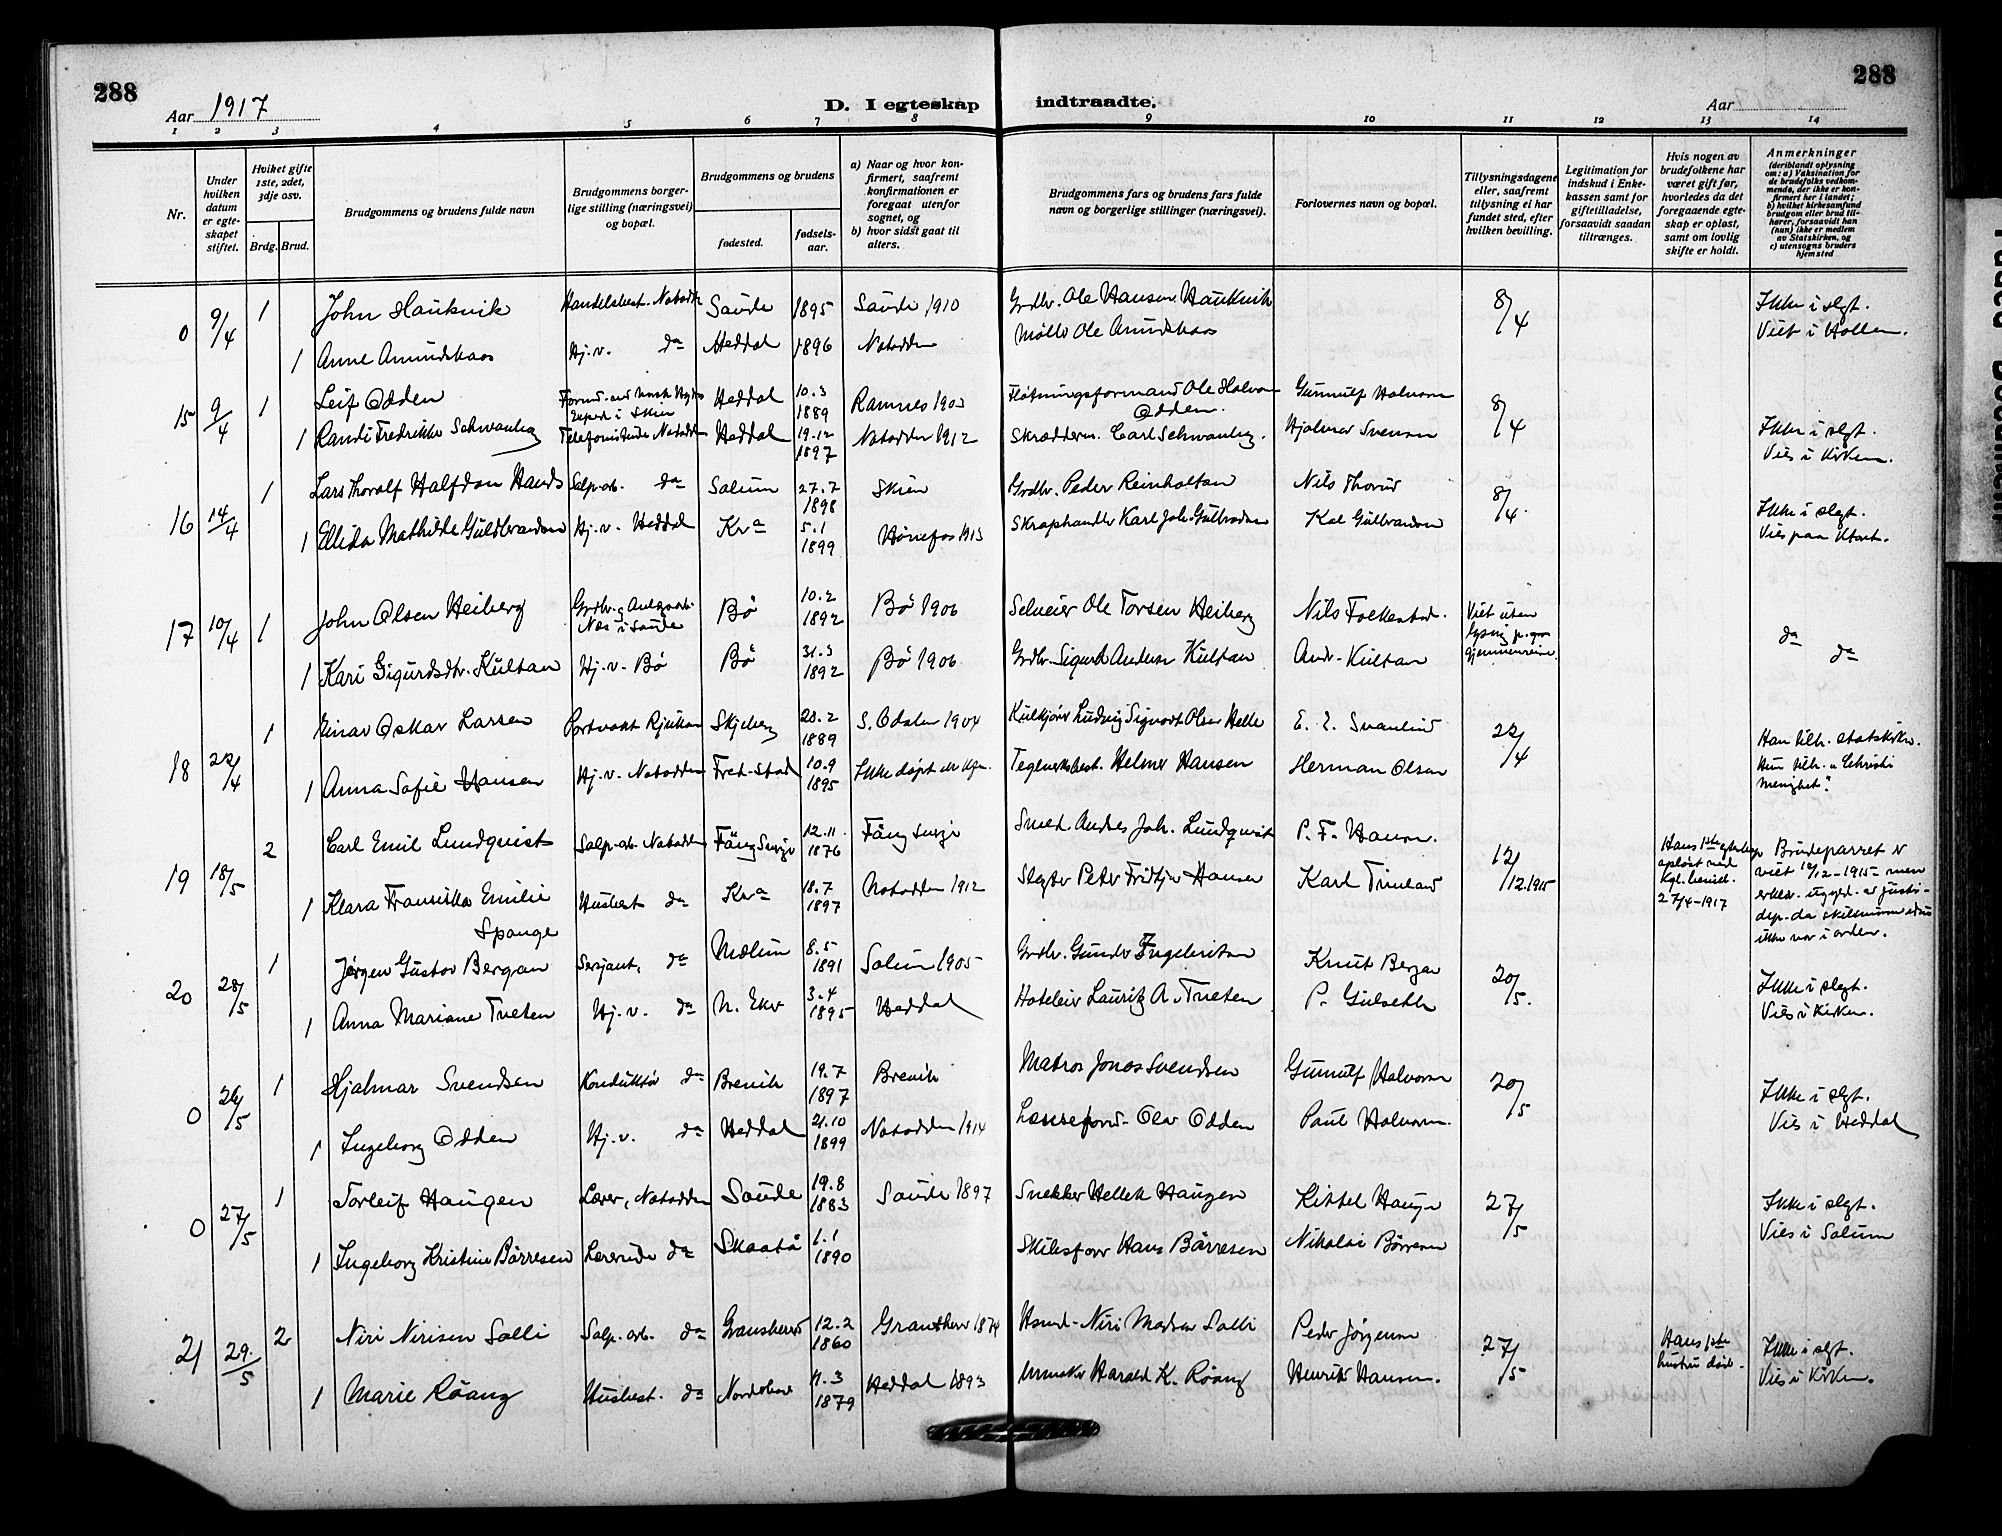 288
288
Aar 1917
D. I egteskap indtraadte.
Aar
1 2 3 4 5 6 7 8 9 10 11 12 13 14
Nr.
Under hvilken datum er egteskapet stiftet.
Hviket gifte 1ste, 2det, 3dje osv.
Brdg. Brud.
Brudgommens og brudens fulde navn
Brudgommens borgerlige stilling (næringsvei) og bopæl.
Brudgommens og brudens
fødested.
fødselsaar.
a) Naar og hvor konfirmert, saafremt konfirmationen er foregaat utenfor sognet, og
b) hvor sidst gaat til alters.
Brudgommens fars og brudens fars fulde navn og borgerlige stillinger (næringsvei).
Forlovernes navn og bopæl.
Tillysningsdagene eller, saafremt tillysning ei har fundet sted, efter hvilken bevilling.
Legitimation for indskud i Enkekassen samt for giftetilladelse, forsaavidt saadan tiltrænges.
Hvis nogen av brudefolkene har været gift før, hvorledes da det foregaaende egteskap er opløst, samt om lovlig skifte er holdt.
Anmerkninger
(deriblandt oplysning om: a) Vaksination for de brudefolks vedkommende, der ikke er konfirmert her i landet;
b) hvilket kirkesamfund brudgom eller brud tilhører, forsaavidt han (hun) ikke er medlem av Statskirken, og
c) utensogns bruders hjemsted
0 9/4 1 John Haukvik Handelsbest. Notodden Saude 1895 Saude 1910 Grdbr. Ole Hansen Haukvik 8/4 Ikke i slegt.
1 Anne Amundskaas Hj.v. do Heddal 1896 Notodden Møller Ole Amundskaas Viet i Hollen.
15 9/4 1 Leif Odden Skien Heddal 10.3 1889 Ramnes 1903 Fløtningsformand Ole Halvorsen Odden. Gunnulf Halvorsen 8/4
1 Randi Fredrikke Schwanberg Telefonistinde Notodden Heddal 19.12 1897 Notodden 1912 Skrædderm. Carl Schwanberg. Hjalmar Svensen Ikke i slegt. Viet i Kirken.
16 14/4 1 Lars Thoralf Halfdan Salp.arb. do Solum 27.7 1898 Skien Grdbr. Peder Reinholtsen Nils Thorud 8/4 Ikke i slegt.
1 Ellida Mathilde Guldbrandsen Hj.v. Heddal Kr.a 5.1 1899 Hønefos 1913 Skraphandler Karl Joh. Gulbrandsen Kal Gulbrandsen
17 10/4 1 John Olsen Heiberg Grdbr. Nes i Saude Bø 10.2 1892 Bø 1906 Selveier Ole Torsen Heiberg Nils Folkestad. Viet uten lysning do do
1 Kari Sigurdsdtr. Kultan Hj.v. Bø Bø 31.3 1892 Bø 1906 Grdbr. Sigurd Andersen Kultan Andr. Kultan
18 22/4 1 Einar Oskar Larsen Portvakt Rjukan Skjeberg 20.2 1889 S. Odalen 1904 Kulkjører Ludvig Sigvart Olsen Helle E. E. Svanlund 22/4 Han tilh. statskirken.
1 Anna Sofie Hansen Hj.v. Notodden Fred-stad 10.9 1895 Ikke døpt Teglverksbest. Helmer Hansen Herman Olsen Hun tilh. "Christi menighet".
19 18/5 2 Carl Emil Lundquist Salp.arb. Notodden Färg Sverige 12.11. 1876 Färg Sverge Smed Andres Joh. Lundqvist P. F. Hansen. 12/12.1915 Hans 1ste egteskap opløst ved Kgl. bevild. 27/4-1917 Brudeparret er viet 12/12-1915- men erklær. ugyld. av justisdep. da skilsmissen ikke var i orden.
1 Klara Fransiska Emilie Spange Husbest do Kr.a 18.7 1897 Notodden 1912 Slagter Peter Fridtjov Hansen Karl
20 28/5 1 Jørgen Gustav Bergan Sersjant, do Mælum 8.5 1891 Solum 1905 Grdbr. Gunder Ingebretsen Knut Bergan 20/5. Ikke i slegt.
1 Anna Mariane Tveten Hj.v. do N. Eker 3.4 1895 Heddal Hoteleier Lauritz A. Tveten P. Gulseth Viet i Kirken.
0 26/5 1 Hjalmar Svendsen Konduktør do Brevik 19.7 1897 Brevik Matros Jonas Svendsen Gunnulf Halvorsen 20/5 Ikke i slegt.
1 Ingeborg Odden Hj.v. do Heddal 21.10 1899 Notodden 1914 Lænseform. Olav Odden Paul Halvorsen. Viet i Heddal
0 27/5 1 Torleif Haugen Lærer, Notodden Saude 19.8 1883 Saude 1897 Snekker Hellek Haugen Kittel Haugen 27/5 Ikke i slegt.
1 Ingeborg Kristine Børresen Lærerinde do Skaatø 1.1 1890 Skibsfører Hans Børresen Nikolai Børresen Viet i Solum
21 29./5 2 Niri Nirisen Solli Salp.arb. do Gransherred 12.2 1860 Gransherr 1874 Husmd. Niri Madsen Solli Peder Jørgensen 27/5 Hans 1ste hustru død. Ikke i slegt.
1 Marie Röang Husbest. do 11.3 1879 Heddal 1893 Harald K. Röang Henrik Hansen. Viet i Kirken.